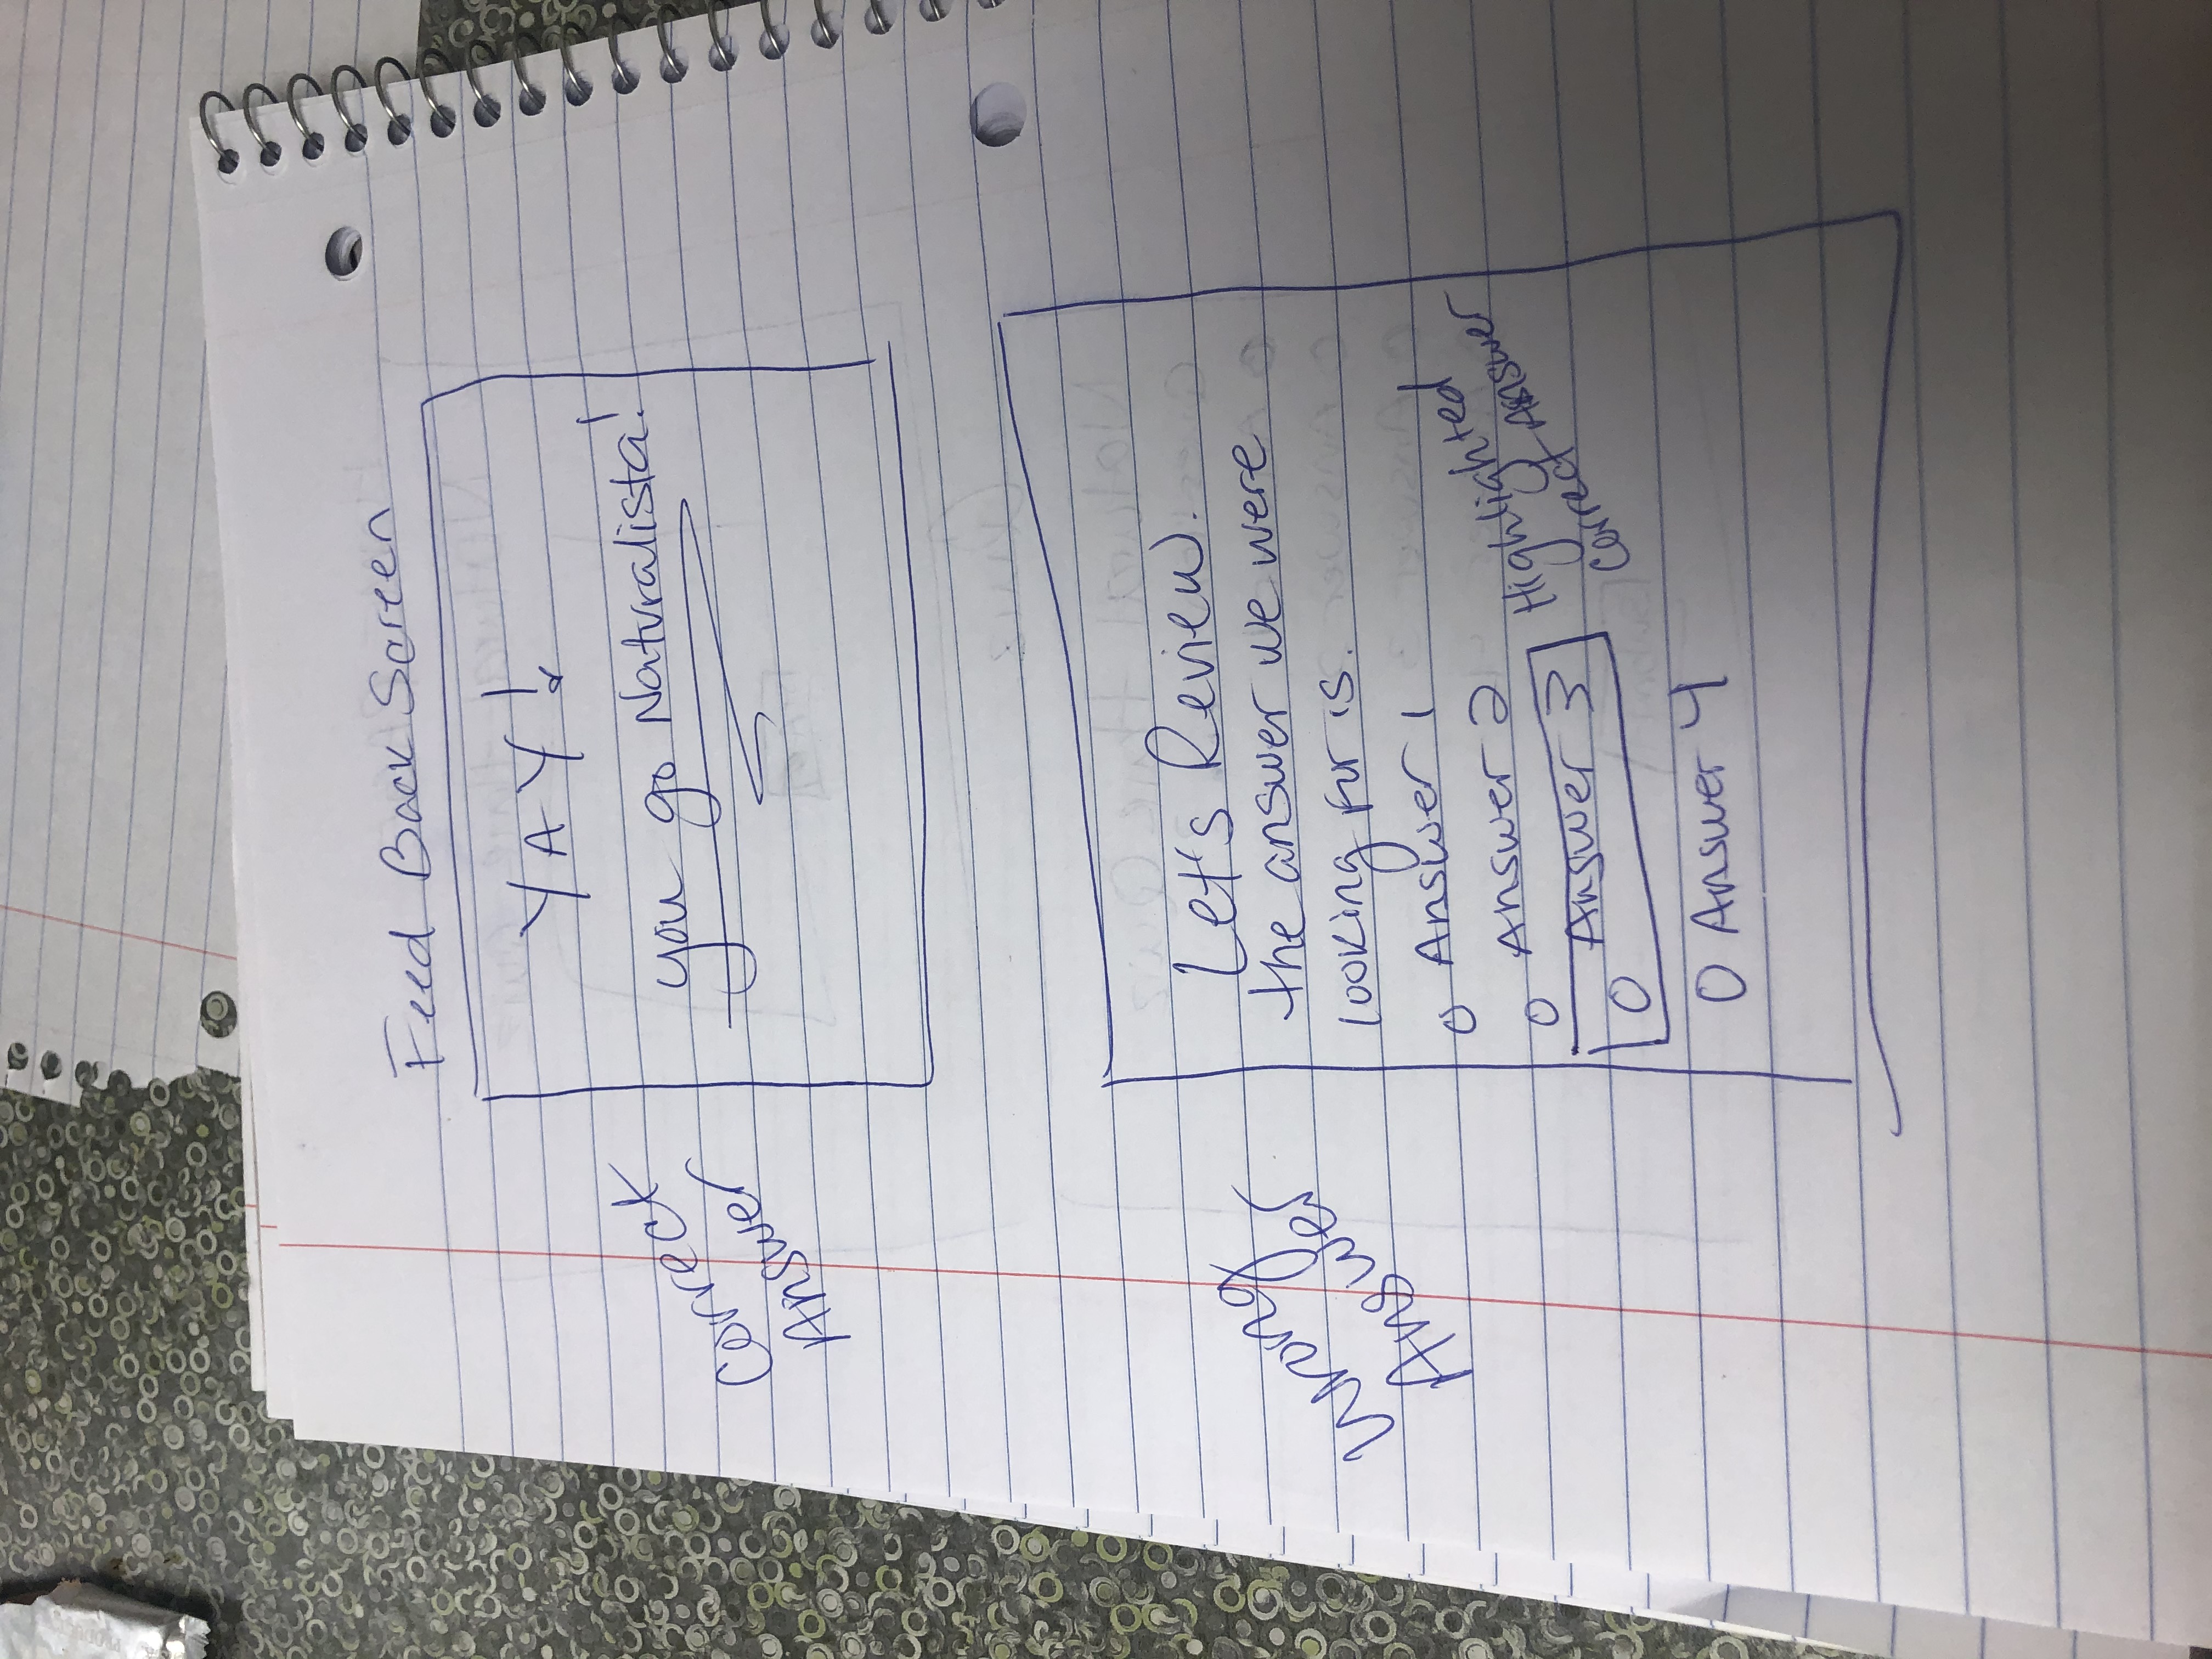 Feed Back Screen
YAY!
you go Naturalista!
Correct
Answer
Let's Review.
the answer we were
looking for is.
O Answer 1
O Answer 2
O Answer 3
Highlighted
Correct Answer
O Answer 4
Wrong
Answer